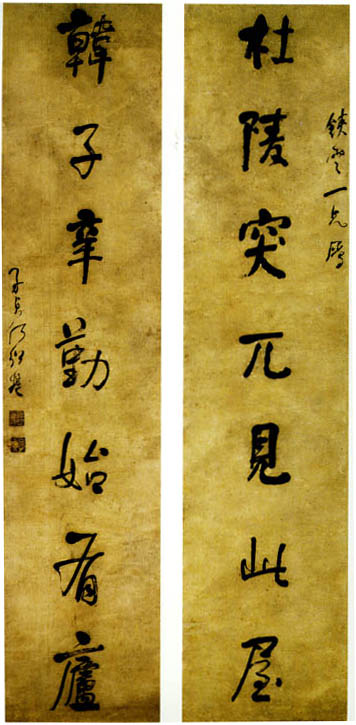 杜陵突兀見此屋
一兄屬
韓子辛勤始有廬
子貞何紹基